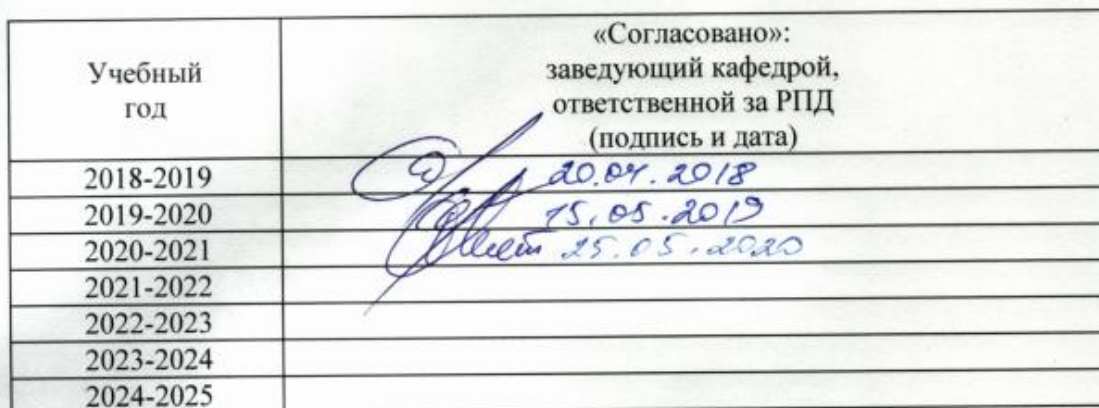 «Согласовано»:
Учебный год
заведующий кафедрой,
ответственной за РПД
(подпись и дата)
2018-2019 20.04.2018
2019-2020 15.05.2019
2020-2021 25.05.2020
2021-2022
2022-2023
2023-2024
2024-2025